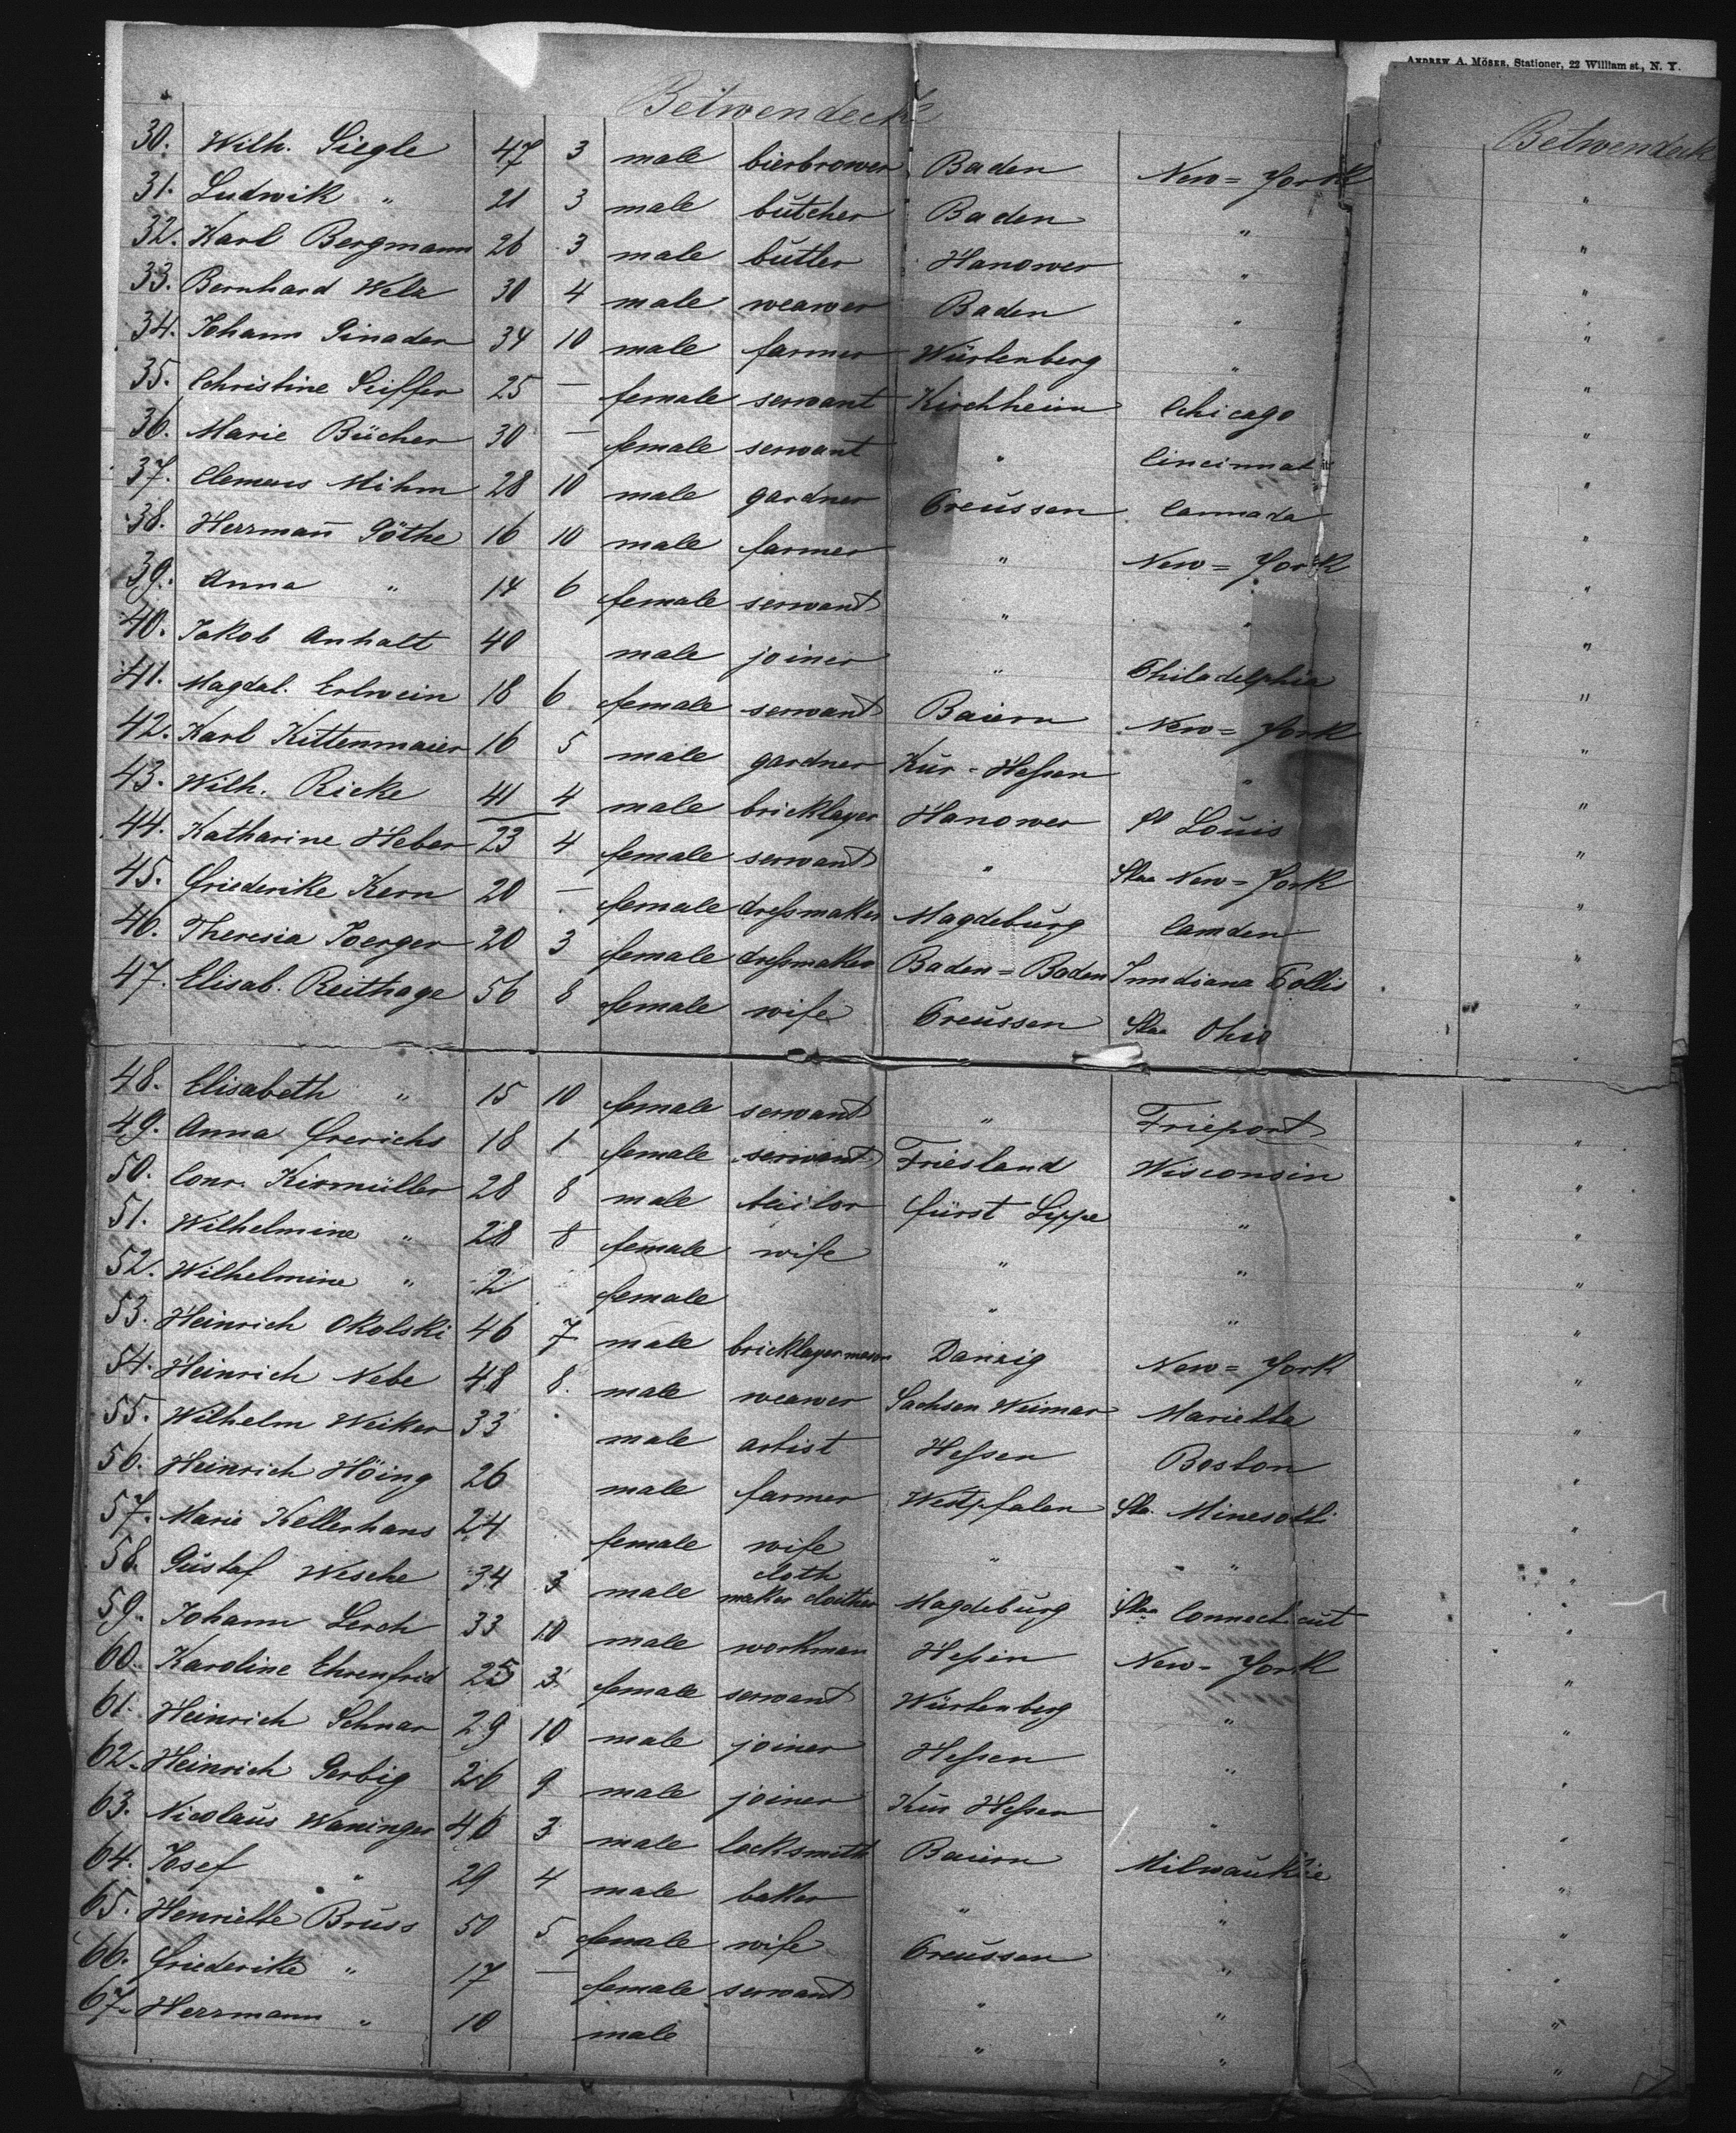 ANDREW A. MÖSER, Stationer, 22 William st., N. Y.
Betwendeck Betwendeck
30. Wilh. Siegle 47 3 male bierbrower Baden New=York "
31. Ludwik " 21 3 male butcher Baden " "
32. Karl Bergmann 26 3 male buttler Hanower " "
33. Bernhard Welz 30 4 male weawer Baden " "
34. Johann Ginader 34 10 male farmer Würtenberg " "
35. Christine Seiffer 25 — female serwant Kirchheim Chicago "
36. Marie Bücher 30 — female serwant " Cincinnati "
37. Clemens Mihm 28 10 male gardner Preussen Cannada "
38. Herrmañ Göthe 16 10 male farmer " New=York "
39. Anna " 14 6 female serwant " " "
40. Jakob Anhalt 40 male joiner " Philadelphia "
41. Magdal. Erlwein 18 6 female serwant Baiern New=York "
42. Karl Kittenmaier 16 5 male gardner Kur-Hessen " "
43. Wilh. Ricke 41 4 male bricklayer Hanower St Louis "
44. Katharine Heber 23 4 female serwant " Staa New=York "
45. Friederike Kern 20 — female dressmaker Magdeburg Camden "
46. Theresia Joerger 20 3 female dressmaker Baden=Baden Inndiana Pollis "
47. Elisab. Reithage 56 8 female wife Preussen Staa Ohio "
48. Elisabeth " 15 10 female serwant " Frieport "
49. Anna Frerichs 18 1 female serwant Friesland Wisconsin "
50. Conr. Kirmüller 28 8 male teilor fürst Lippe " "
51. Wilhelmine " 28 8 female wife " " "
52. Wilhelmine " 2 female " " "
53. Heinrich Okolski 46 7 male bricklayer mason Danzig New=York "
54. Heinrich Nebe 48 8 male weawer Sachsen Weimar Marietta "
55. Wilhelm Weiker 33 male artist Hessen Boston "
56. Heinrich Höing 26 male farmer Westpfalen Sta. Minesotti "
57. Marie Kellerhans 24 female wife " " "
58. Gustaf Wesche 34 3 male cloth maker clouther Magdeburg Staa Connecticut "
59. Johann Lerch 33 10 male workman Hessin New-York "
60. Karoline Ehrenfrid 25 3 female serwant Würtenberg " "
61. Heinrich Schnar 29 10 male joiner Hessen " "
62. Heinrich Gerbig 26 9 male joiner Kur Hessen " "
63. Nicolaus Waninger 46 3 male locksmith Baiern Milwaukie "
64. Josef " 29 4 male baker " " "
65. Henriette Bruss 50 5 female wife Preussen " "
66. Friederike " 17 — female serwant " " "
67. Herrmann " 10 male " " "